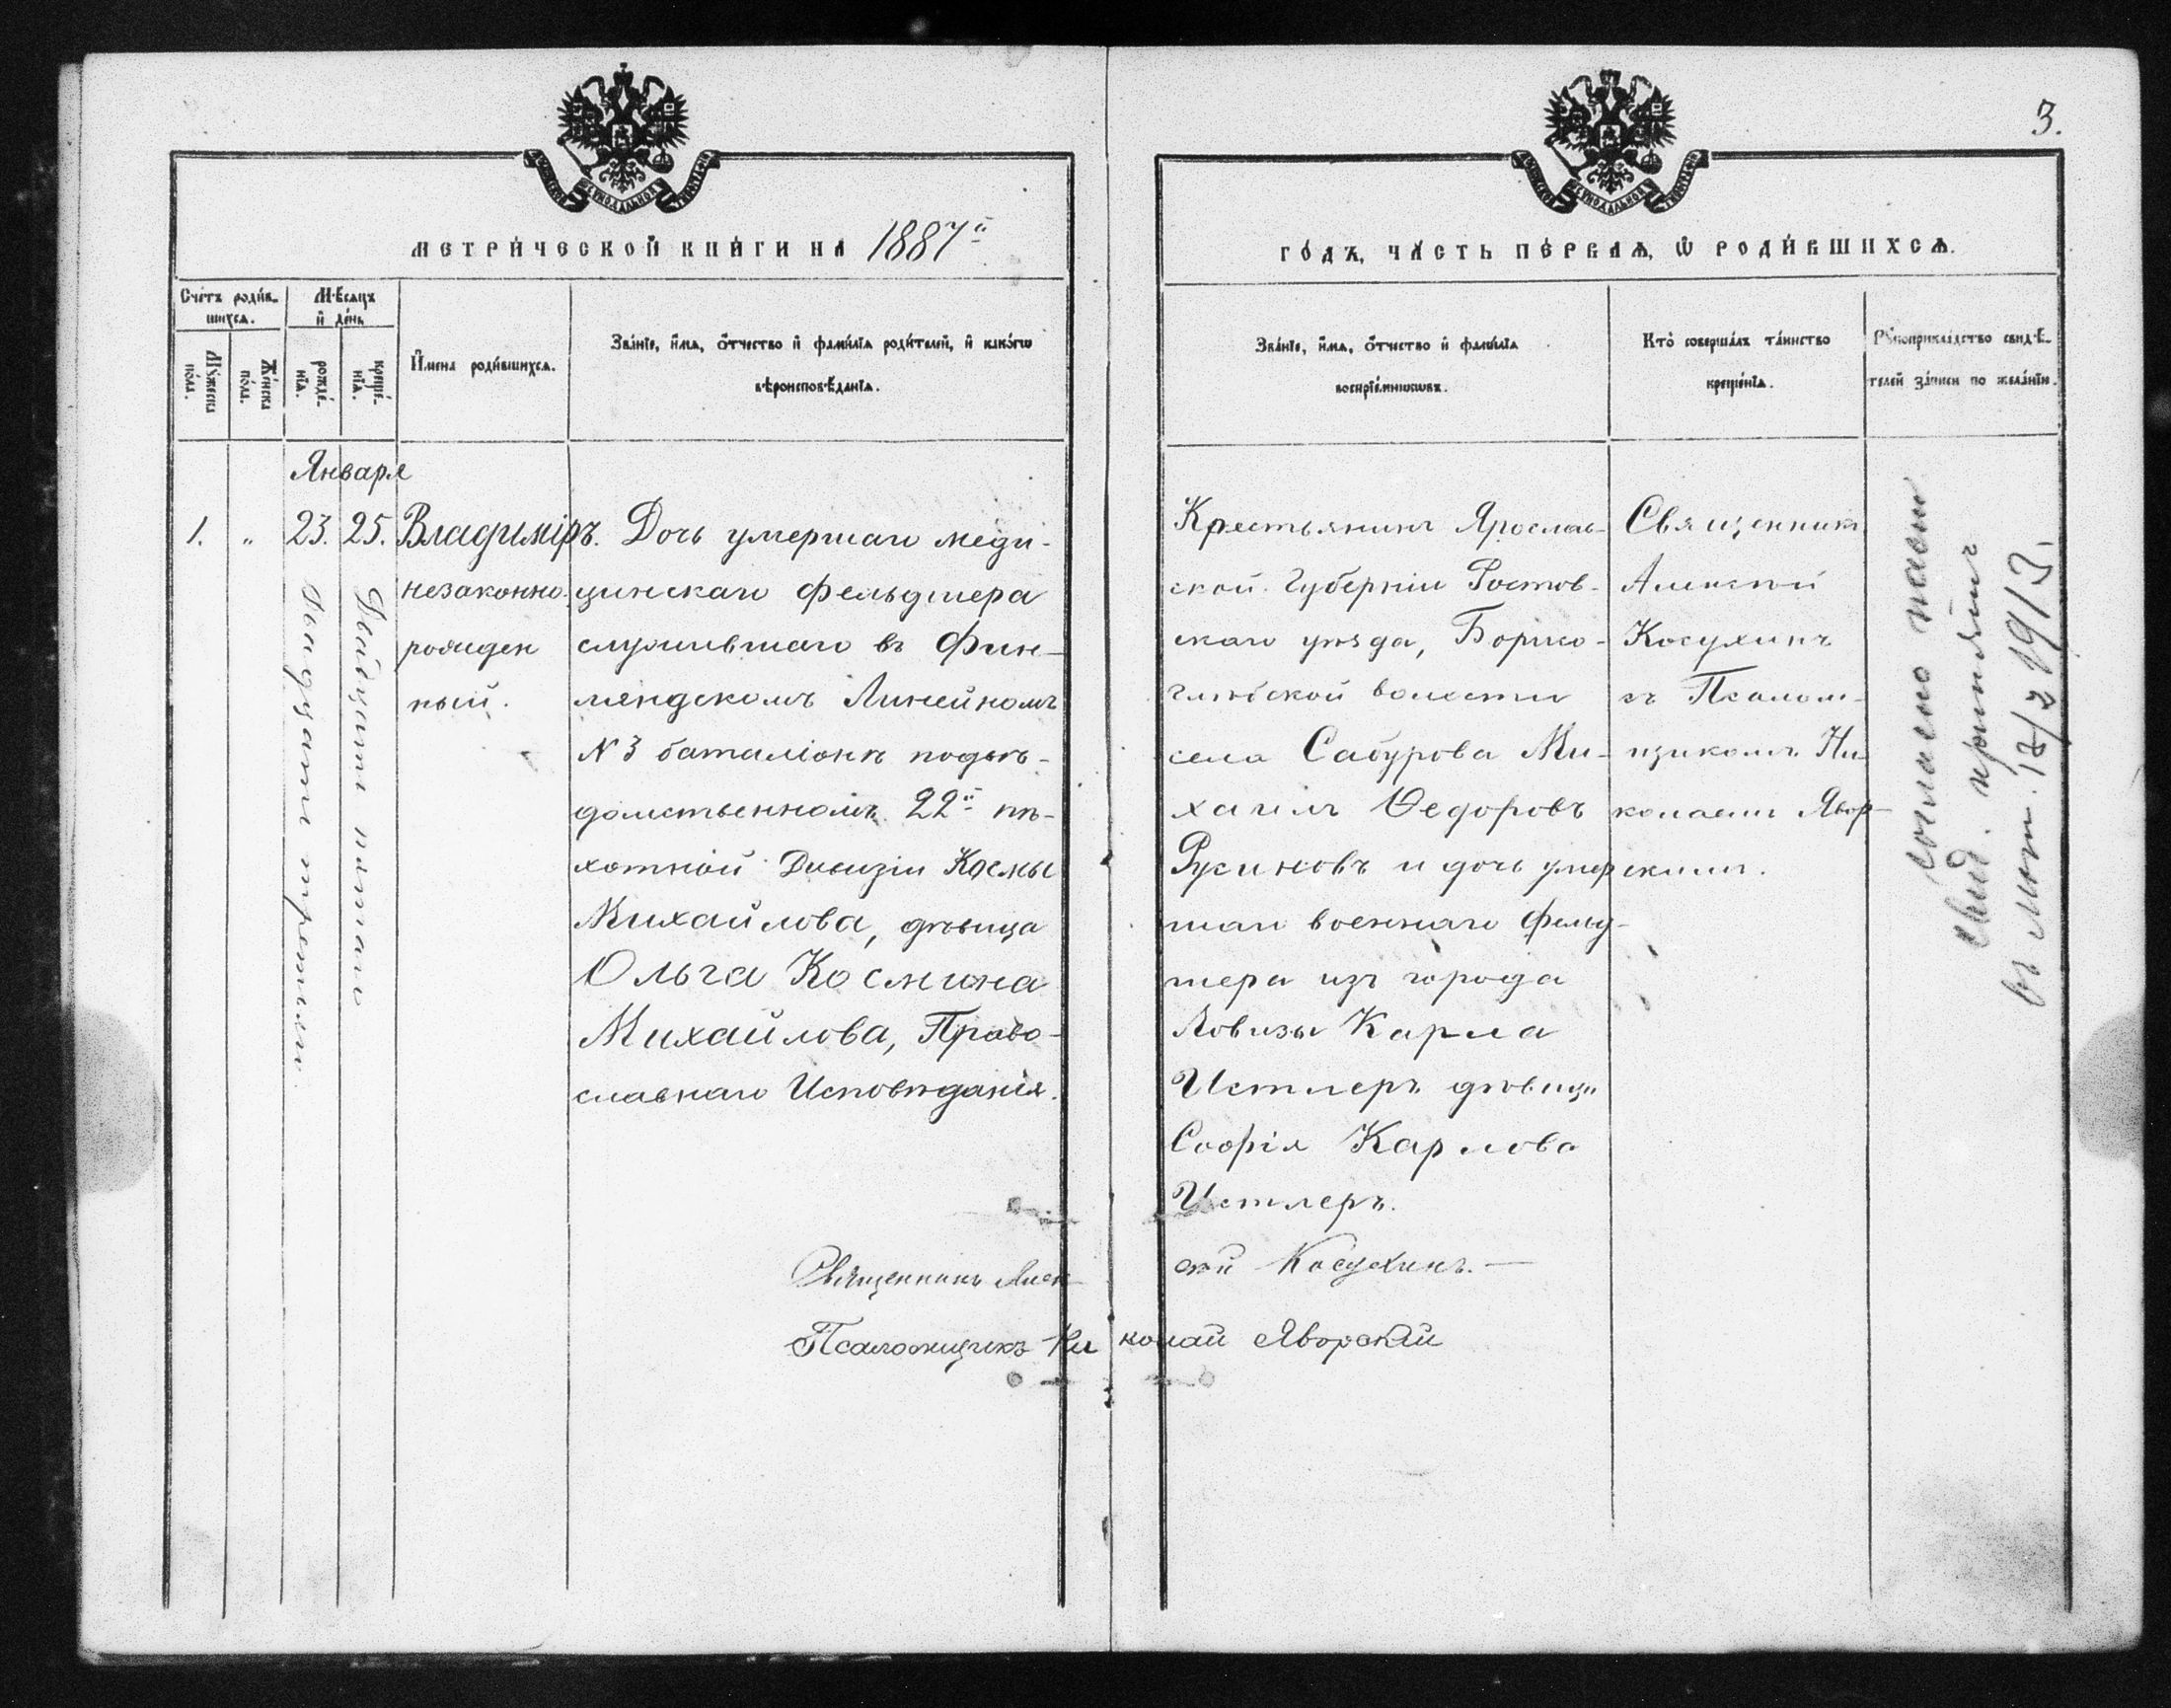 3.
МЕТРИ́ЧЕСКОЙ КНИ́ГИ НА 1887й
ГО́ДЪ, ЧА́СТЬ ПЕ́РВАѦ, Ѿ РОДИ́ВШИХСѦ.
Сче́тъ роди́в-
шихсѧ.
Мѣ́сяцъ
и де́нь
Му́жеска
по́ла.
Же́нска
по́ла.
рожде́-
нїѧ.
креще́-
нїѧ.
И́мена роди́вшихсѧ.
Зва́нїе, и́мѧ, ѻ́тчество и фами́лїѧ роди́телей, и како́гѡ
вѣроисповѣ́данїѧ.
Зва́нїе, и́мѧ, ѻ́тчество и фами́лїѧ
воспрїе́мникѡвъ.
Кто̀ соверша́лъ та́инство
креще́нїѧ.
Рꙋкоприкла́дство свидѣ́-
телей за́писи по жела́нїю.
Января
1. " 23. 25. Владиміръ.
незаконно-
рожден
ный.
Двадцать третьяго.
Двадцать пятаго
Дочь умершаго меди-
цинскаго фельдшера
служившаго въ Фин-
ляндскомъ Линейномъ
N 3 баталіонѣ подвѣ-
домственномъ 22й пѣ-
хотной Дивизіи Космы
Михайлова, дѣвица
Ольга Космина
Михайлова, Право-
славнаго Исповѣданія.
Крестьянинъ Ярослав-
ской Губерніи Ростов-
скаго уѣзда, Борисо-
глѣбской волости
села Сабурова Ми-
хаилъ Ѳедоровъ
Русиновъ и дочь умер
шаго военнаго фельд-
шера изъ города
Ловизы Карла
Истлеръ дѣвица
Софія Карлова
Истлеръ.
Священникъ
Алексѣй
Косухинъ
съ Псалом-
щикомъ Ни-
колаемъ Явор-
скимъ.
въ мѣт. 1913.
Священникъ Алексѣй Косухинъ.—
Псаломщикъ Николай Яворскій